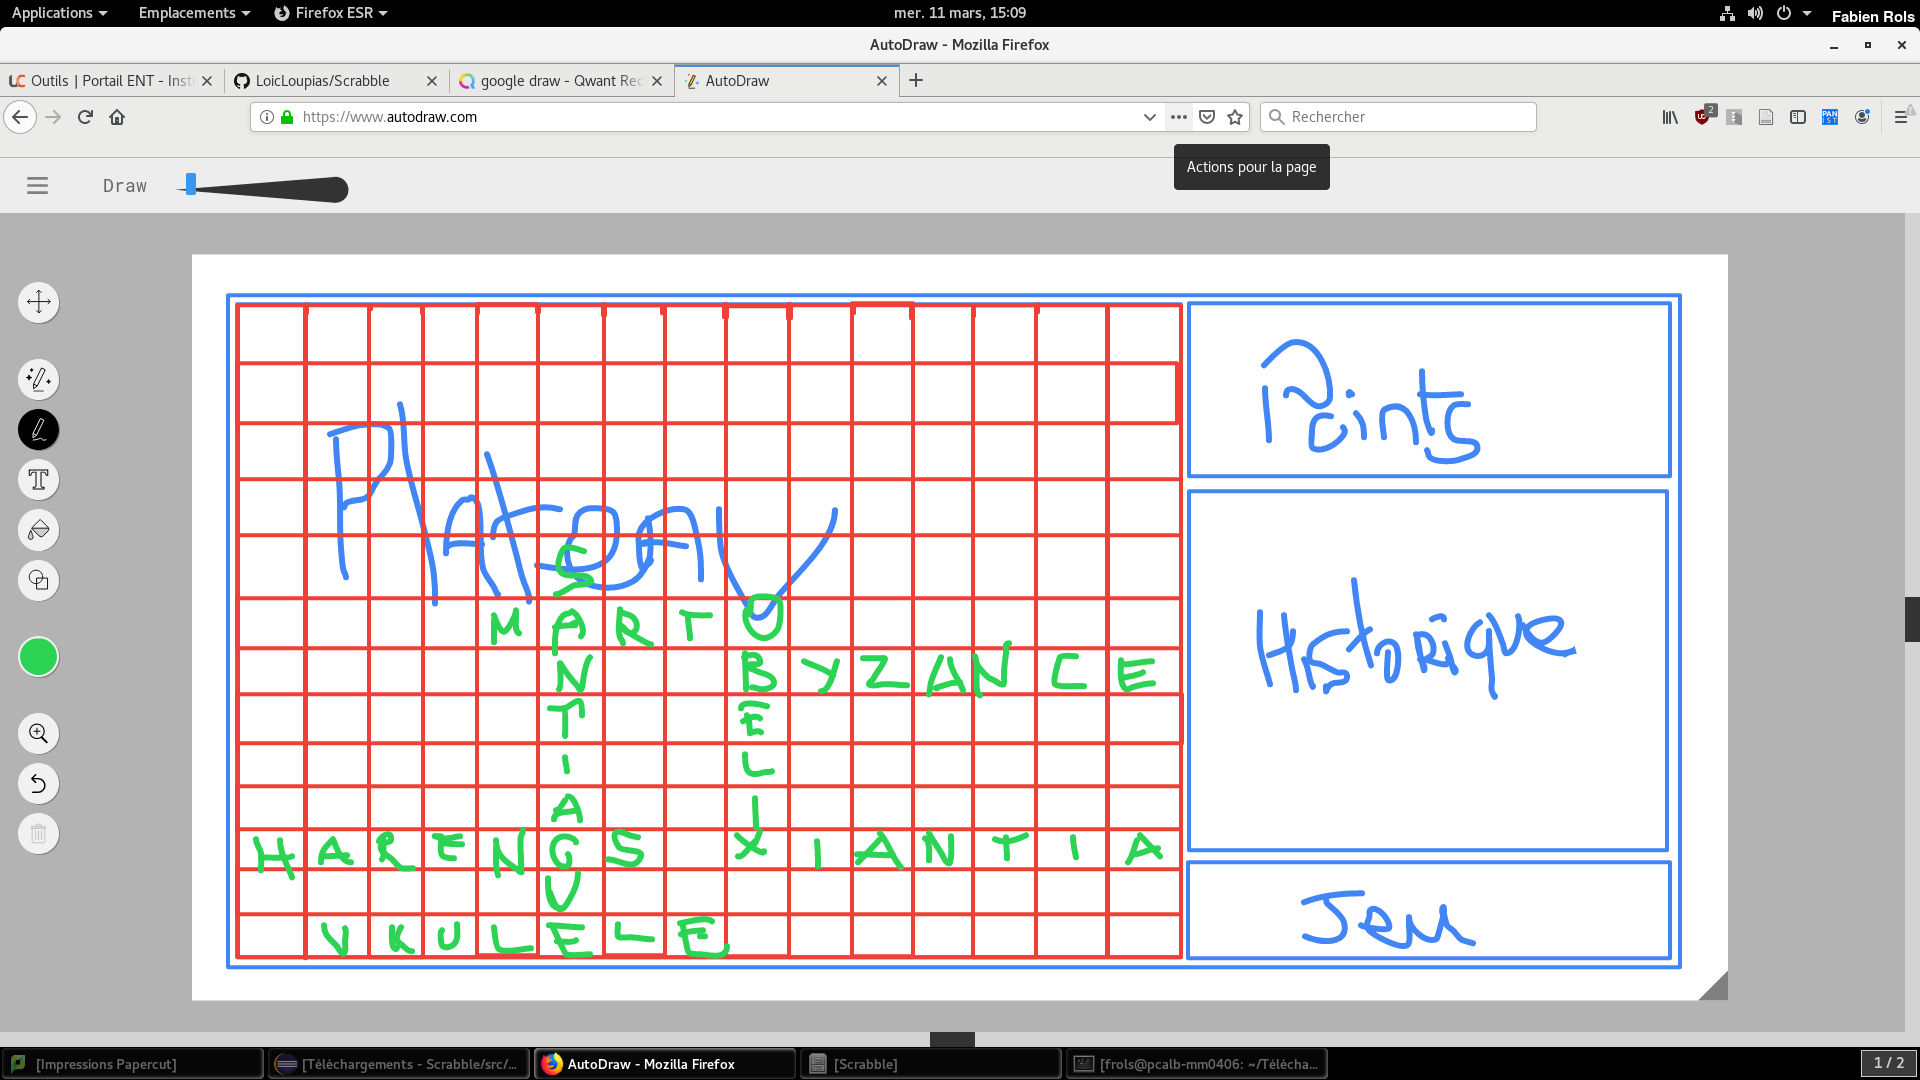 Applications Emplacements Firefox ESR mer. 11 mars, 15:09 Fabien Rols
AutoDraw - Mozilla Firefox
Outils | Portail ENT - Inst LoicLoupias/Scrabble google draw - Qwant Rec AutoDraw
https://www.autodraw.com Rechercher 2
Actions pour la page
Draw
Points
Plateau
Historique
S
MARTO
N BYZANCE
T E
I L
A I
HARENGS XIANTIA
U
UKULELE
Jeu
[Impressions Papercut] [Téléchargements - Scrabble/src/... AutoDraw - Mozilla Firefox [Scrabble] [frols@pcalb-mm0406: ~/Télécha... 1 / 2